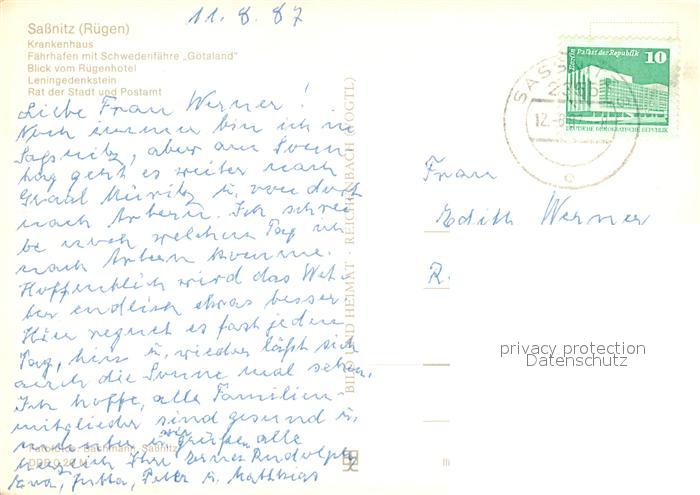 11. 8. 87
Saßnitz (Rügen)
Krankenhaus
Fährhafen mit Schwedenfähre „Götaland"
Blick vom Rügenhotel
Leningedenkstein
Rat der Stadt und Postamt
Liebe Frau Werner!
Noch immer bin ich in
Sassnitz, aber am Sonn
tag geht es weiter nach
Graal Müritz u. von dort
nach Arbern. Ich schrei
be noch welchen Tag ich
nach Arbern komme.
Hoffentlich wird das Wet-
ter endlich etwas besser
Hier regnet es fast jeden
Tag, hin u. wieder läßt sich
auch die Sonne mal sehen.
Ich hoffe, alle Familien-
mitglieder sind gesund u.
munter wir grüßen alle
herzlich Ihre Rudolph
Eva, Jutta, Peter u. Matthias
Bachmann, Saßnitz
BILD UND HEIMAT · REICHENBACH (VOGTL)
SASSNITZ
2355
12.-8
Berlin, Palast der Republik
10
DEUTSCHE DEMOKRATISCHE REPUBLIK
Frau
Edith Werner
R.
privacy protection
Datenschutz